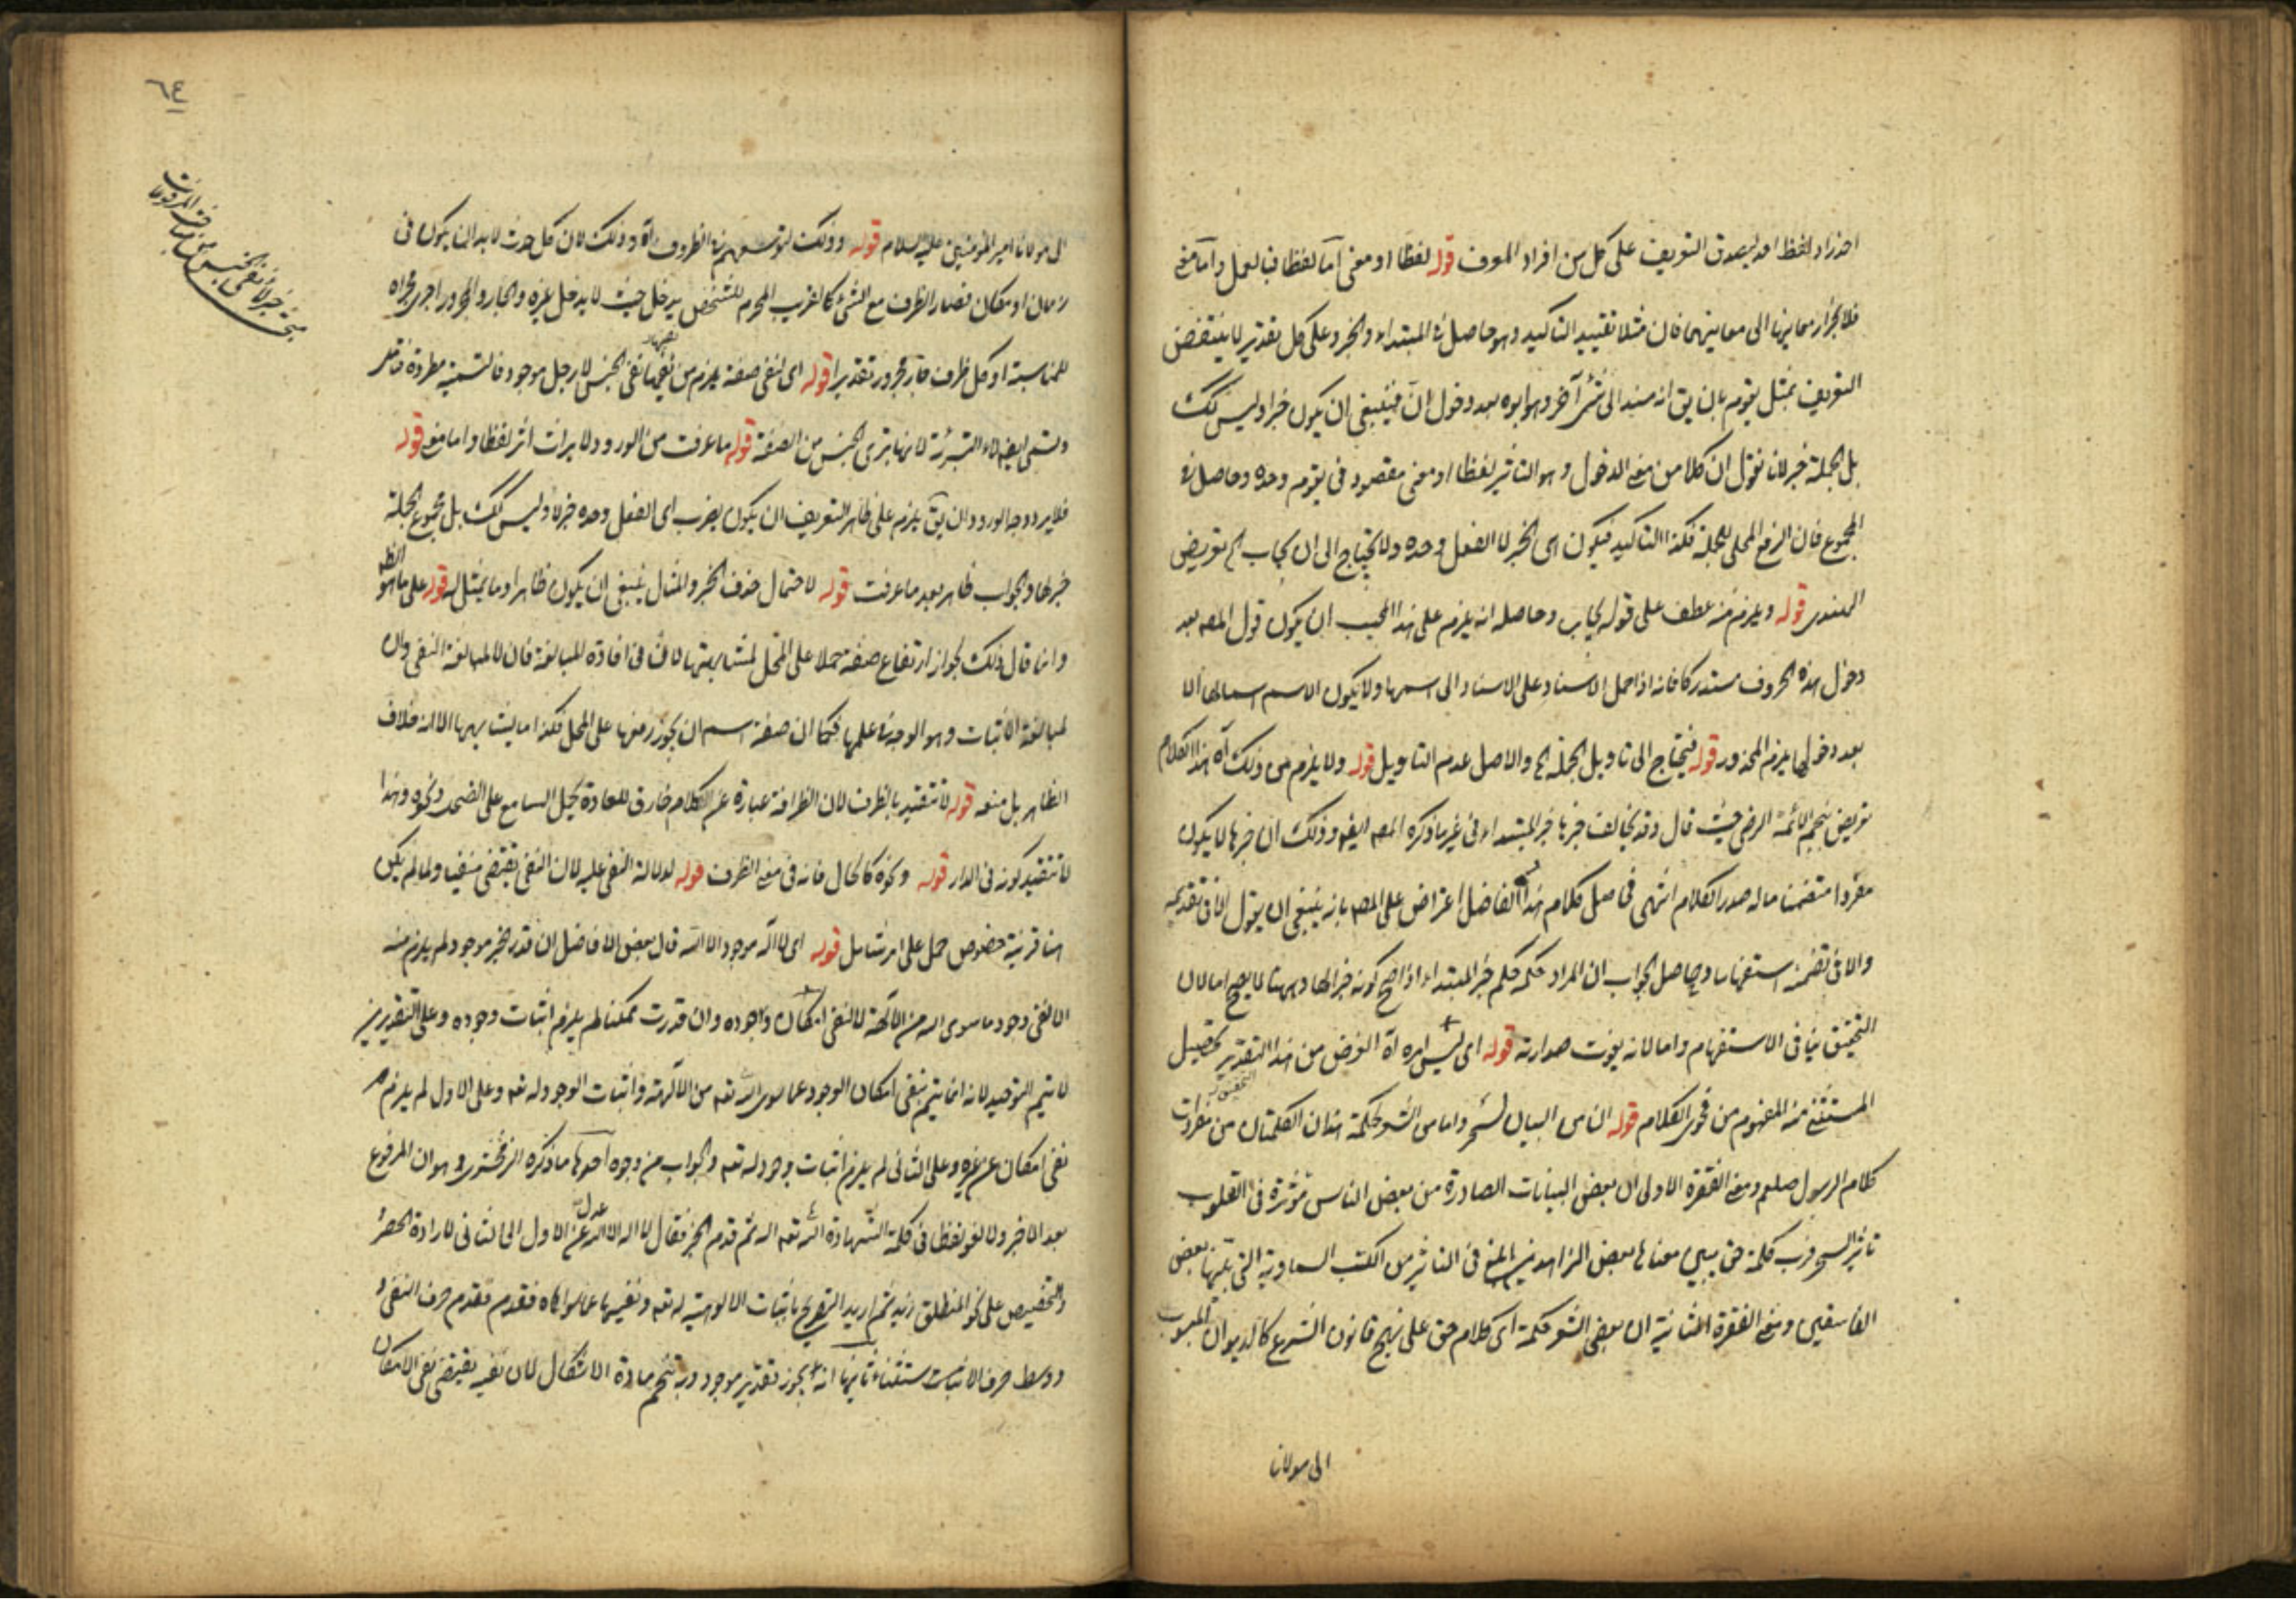 احد زاد لفظ احد ليصدق التعريف على كل من افراد المعرف قوله لفظا او معنى اما لفظا فبالعمل واما معنى
التعريف بمثل يقوم بان يق انه مسند الى شئ آخر وهو ابوه بعد دخول ان فينبغى ان يكون خبرا وليس كك
بل الجملة خبر لانا نقول ان كلا من معنى الدخول وهو التاثير لفظا او معنى مقصود فى يقوم وحده وحاصل فى
المجموع فان الرفع المحلى للجملة فكذا التاكيد فيكون اى الخبر لا الفعل وحده ولا يحتاج الى ان يجاب الخ تعريض
الهندى قوله ويلزم منه عطف على قوله يجاب وحاصله انه يلزم على هذا المجيب ان يكون قول المصه بعد
دخول هذه الحروف مستدركا فانه اذا حمل الاسناد على الاسناد الى اسمها ولا يكون الاسم اسما لها الا
بعد دخولها يلزم المحذور قوله فيحتاج الى تاويل الجملة الخ والاصل عدم التاويل قوله ولا يلزم من ذلك آه هذا الكلام
تعريض بنجم الائمة الرضى حيث قال وقد يخالف خبرها خبر المبتداء فى غير ما ذكره المصه ايضه وذلك ان خبرها لا يكون
مفردا متضمنا ما له صدر الكلام انتهى فحاصل كلام هذا الفاضل اعتراض على المصه بانه ينبغى ان يقول الا فى تقديمه
والا فى تضمنه استفهاما وحاصل الجواب ان المراد حكمه حكم خبر المبتداء اذا صح كونه خبرا لها وههنا لا يصح اما لان
التحقيق ينافى الاستفهام واما لانه يفوت صدارته قوله اى ليس امره آه الغرض من هذا التقدير تحصيل
المستثنى منه المفهوم من فحوى الكلام قوله ان من البيان لسحر وان من الشعر لحكمة هذان الكلمتان من مفردات
كلام الرسول صلعم ومعنى الفقرة الاولى ان بعض البيانات الصادرة من بعض الناس مؤثرة فى القلوب
تاثير السحر ورب كلمة حق يبين معناها بعض الزاهدين ابلغ فى التاثير من الكتب السماوية التى يتليها بعض
الفاسقين ومعنى الفقرة الثانية ان بعض الشعر حكمة اى كلام حق على نهج قانون الشرع كالديوان المنسوب
الى مولانا
٦٤
الى مولانا امير المؤمنين عليه السلام قوله وذلك لتوسعهم فى الظروف آه وذلك لان كل حدث لا بد ان يكون فى
زمان او مكان فصار الظرف مع الشئ كالقريب المحرم للشخص يدخل حيث لا يدخل غيره والجار والمجرور اجرى مجراه
للمناسبة او كل ظرف جار مجرور تقديرا قوله اى لنفى صفة يلزم من نفيها نفى الجنس لا رجل موجود فالتسمية مطردة
وتسمى ايضه لاء التبرئة لانها تبرئ الجنس من الصفة قوله ما عرفت من الورود ولا يراث اثر لفظا واما معنى قوله
فلا يرد وجه الورود ان يق يلزم على ظاهر التعريف ان يكون يضرب اى الفعل وحده خبر لا وليس كك بل مجموع الجملة
خبرها والجواب ظاهر بعد ما عرفت قوله لاحتمال حذف الخبر والمثال ينبغى ان يكون ظاهرا وما يمثل له قوله على ما هو الظه
وانما قال ذلك لجواز ارتفاع صفة حملا على المحل لمشابهتها لان فى افادة المبالغة فان لا لمبالغة النفى وان
لمبالغة الاثبات وهو الوجه فى عملها فكما ان صفة اسم ان يجوز رفعها على المحل فكذا ما يشابهها الا انه خلاف
الظاهر بل منعه قوله لا تتقيد بالظرف لان الظرافة عبارة عن الكلام خارق للعادة يحمل السامع على الضحك ونحوه وهذا
لا تتقيد بكونه فى الدار قوله ونحوه كالحال فانه فى معنى الظرف قوله لدلالة النفى عليه لان النفى يقتضى منفيا ولما لم يكن
هنا قرينة خصوص حمل على امر شامل قوله اى لا اله موجود الا الله قال بعض الافاضل ان قدر خبر موجود لم يلزم منه
الا نفى وجود ما سوى الله من الآلهة لا نفى امكان وجوده وان قدرت ممكنا لم يلزم اثبات وجوده وعلى التقديرين
لا يتم التوحيد لانه انما يتم بنفى امكان الوجود عما سوى الله تعه من الآلهة واثبات الوجود له تعه وعلى الاول لم يلزم
نفى امكان عن غيره وعلى الثانى لم يلزم اثبات وجود له تعه والجواب من وجوه احدها ما ذكره الزمخشرى وهو ان المرفوع
بعد الا خبر ولا لغو لفظا فى كلمة الشهادة الله تعه اله ثم قدم الخبر فقال لا اله الا الله عدل عن الاول الى الثانى لارادة الحصر
والتخصيص على نحو المنطلق زيد ثم اريد التصريح باثبات الالوهية له تعه ونفيها عما سواه فقدم حرف النفى
ووسط حرف الاثبات ثانيها انه يجوز تقدير موجود وبه تنحسم مادة الاشكال لان نفيه يقتضى نفى الامكان